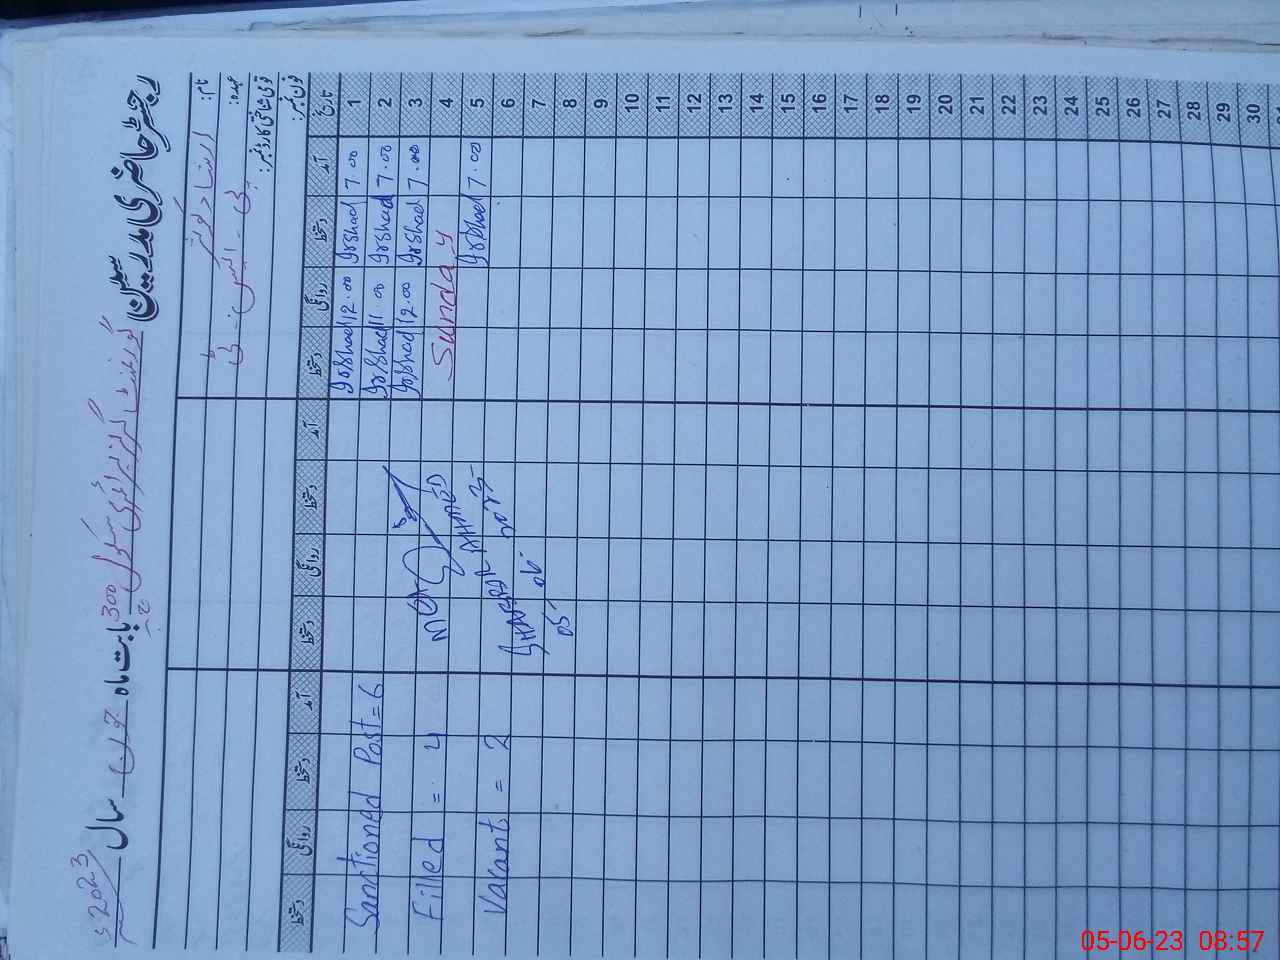 رجسٹر حاضری مدرسین گورنمنٹ گرلز پرائمری سکول 300 بابت ماہ جون سال 2023ء
نام: ارشاد کوثر
عہدہ: پی۔ایس۔ٹی
قومی شناختی کارڈ نمبر:
فون نمبر:
تاریخ آمد دستخط روانگی دستخط آمد دستخط روانگی دستخط آمد دستخط روانگی دستخط
1 7.00 Irshad 12.00 Irshad
2 7.00 Irshad 11.00 Irshad
3 7.00 Irshad 12.00 Irshad
4 Sunday
5 7.00 Irshad
6
7
8
9
10
11
12
13
14
15
16
17
18
19
20
21
22
23
24
25
26
27
28
29
30
AHMED
05-06-2023
Sanctioned Post = 6
Filled = 4
Vacant = 2
05-06-23 08:57